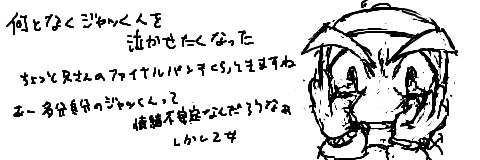 何となくジャックん人を
泣かせたくなった
ちょっと兄さんのファイナルパンチくらってきますね
むー多分自分のジャックんって
情緒不安定なんだろうなぁ
しかしてな